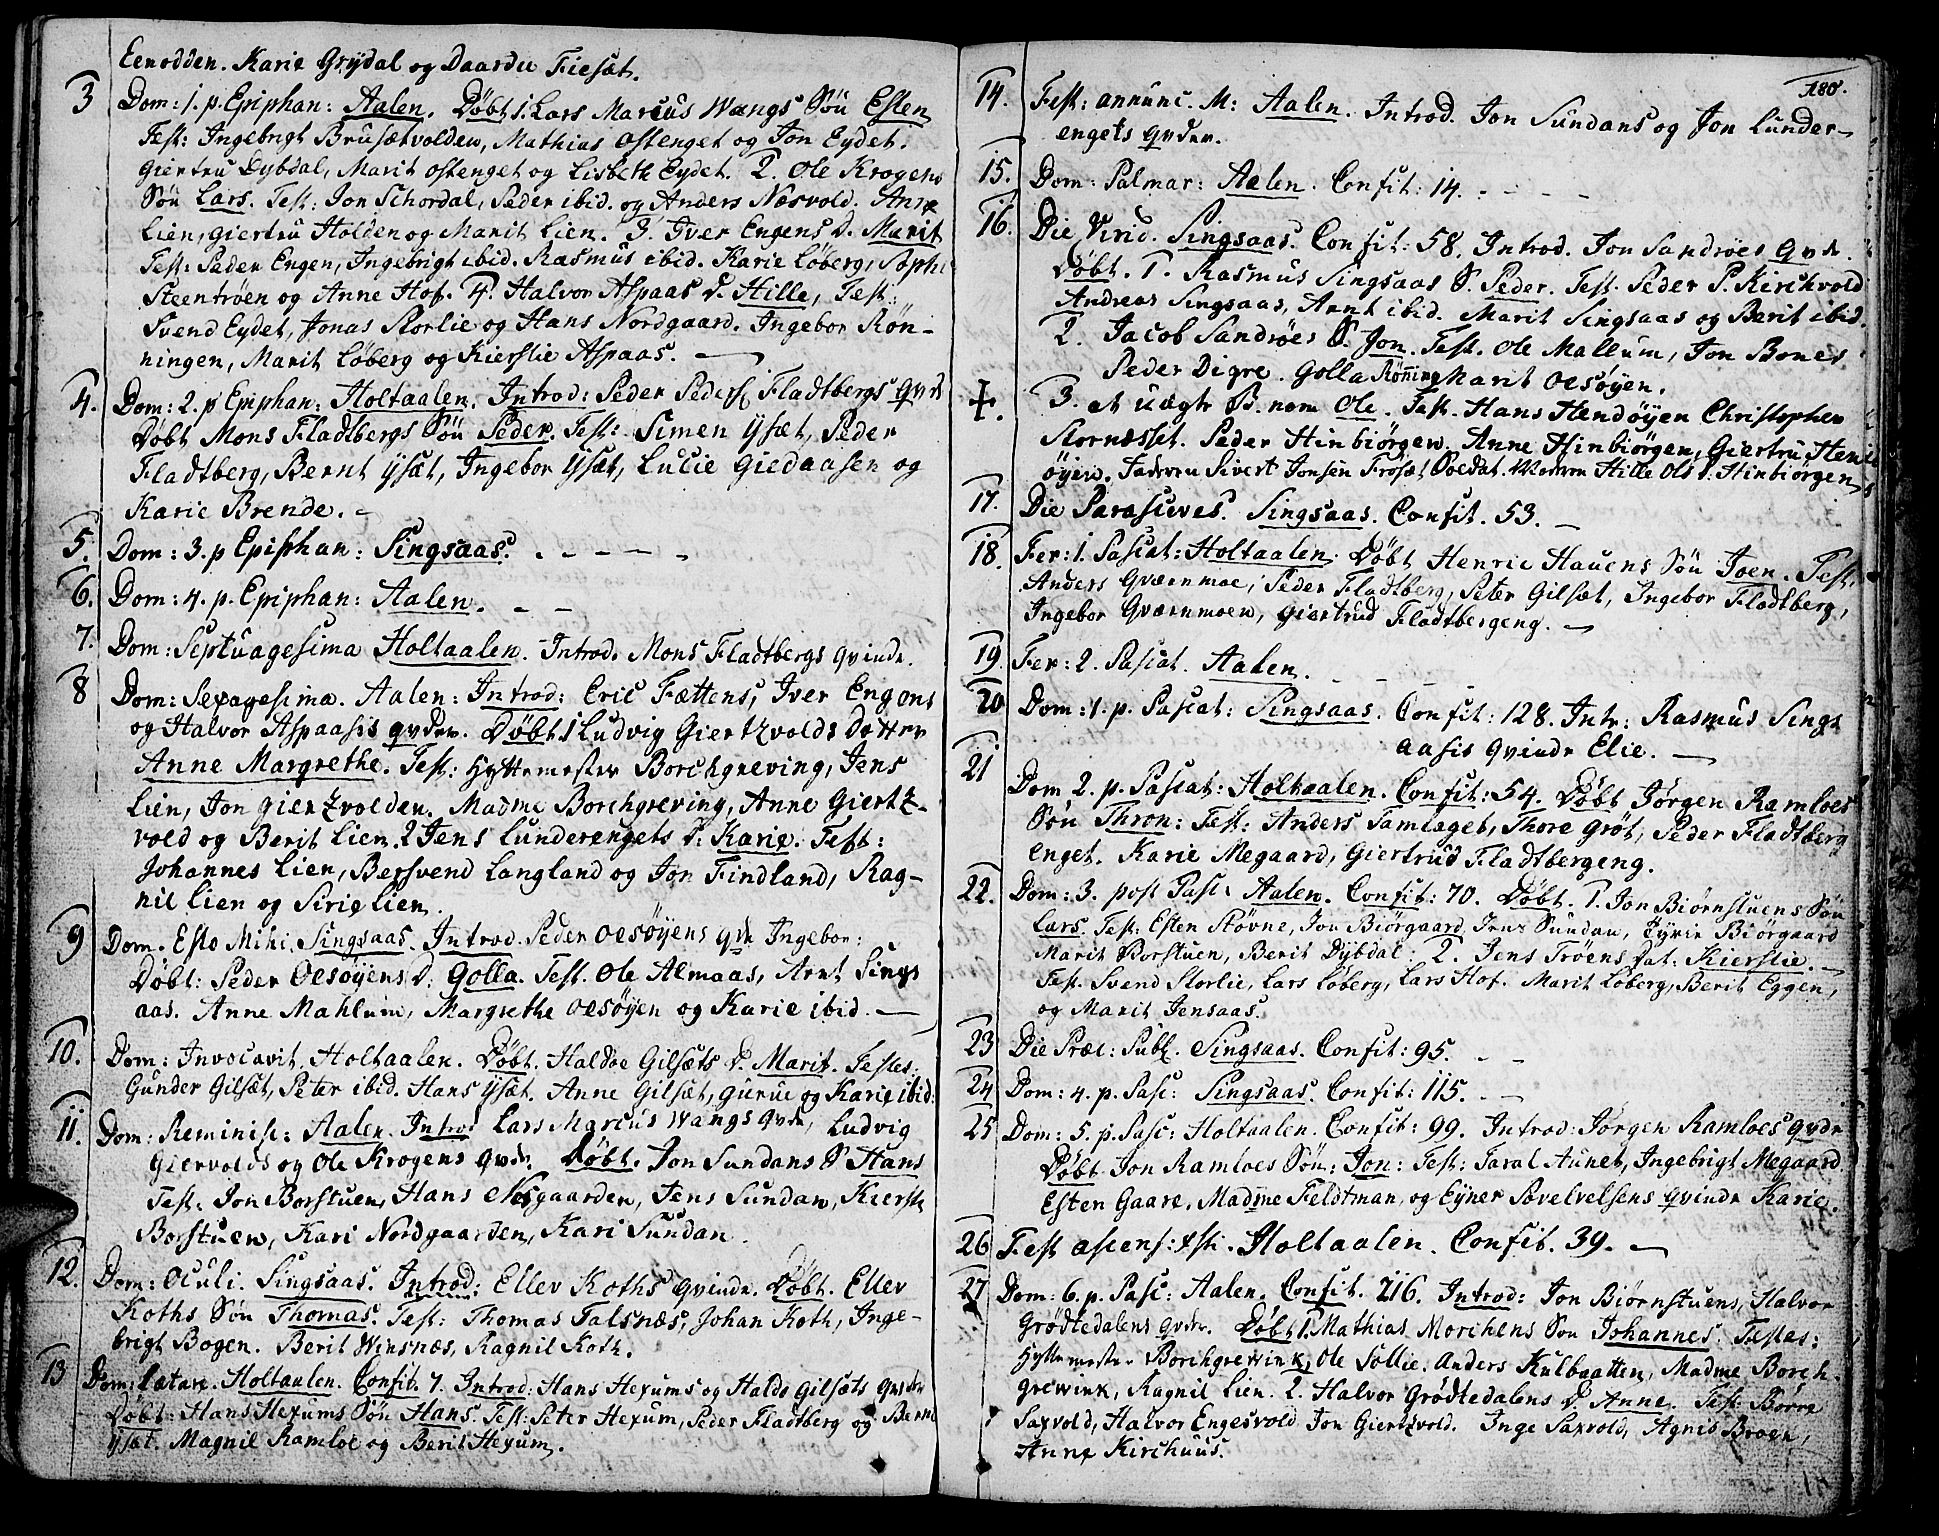 Eenodden. Karie Grydal og Daardie Fiesæt.
3 Dom: 1. p. Epiphan: Aalen. Döbt 1. Lars Marcus Wangs Sön Esten
Test: Ingebrigt Brusætvolden, Mathias Ostenget og Jon Eydet.
Giertru Dybdal, Marit Ostenget og Lisbeth Eydet. 2. Ole Krogens
Sön Lars. Test: Jon Schordal, Peder ibid. og Anders Næsvold. Anne
Lien, Giertru Holden og Marit Lien. 3. Iver Engens D. Marit
Test: Peder Engen, Ingebrigt ibid. Rasmus ibid. Karie Löberg, Sophi
Steentröen og Anne Hof. 4. Halvor Aspaas D. Hille, Test:
Svend Eydet, Jonas Storlie og Hans Nordgaard. Ingebor Rön-
ningen, Marit Löberg og Kierstie Aspaas.
4. Dom: 2. p Epiphan: Holtaalen. Introd: Peder Peders. Fladtbergs qvde
Döbt Mons Fladtbergs Sön Peder. Test: Simen Ysæt, Peder
Fladtberg, Bernt Ysæt, Ingebor Ysæt, Lucie Giedaasen og
Karie Brende.
5. Dom: 3. p Epiphan: Singsaas.
6. Dom: 4. p. Epiphan: Aalen.
7. Dom: Septuagesima Holtaalen. Introd. Mons Fladtbergs qvinde.
8 Dom: Sexagesima. Aalen: Introd: Eric Fættens, Iver Engens
og Halvor Aspaasis qvder. Döbt 1 Ludvig Giertzvolds Datter
Anne Margrethe. Test: Hyttemester Borchgreving, Jens
Lien, Jon Giertzvolden. Madme Borchgreving, Anne Giertz-
vold og Berit Lien. 2 Jens Lunderengets D: Karie. Test:
Johannes Lien, Bersvend Langland og Jon Findland, Rag-
nil Lien og Sirie Lien.
9 Dom. Esto Mihi. Singsaas. Introd. Peder Oesöyens qvde Ingebor:
Döbt: Peder Oesöyens D: Golla. Test. Ole Almaas, Arnt Sings
aas. Anne Mahlum, Margrethe Oesöyen og Karie ibid.
10. Dom: Invocavit, Holtaalen. Döbt. Haldoe Gilsæts D. Marit. Testes:
Gunder Gilsæt, Peter ibid. Hans Ysæt. Anne Gilsæt, Gurue og Karie ibid:
11. Dom: Reminisc: Aalen. Introd Lars Marcus Wangs qvde, Ludvig
Giervolds og Ole Krogens qvdr. Döbt. Jon Sundans S Hans
Test: Jon Borstuen, Hans Nesgaarden, Jens Sundan, Kierste
Borstuen, Kari Nordgaarden, Kari Sundan.
12. Dom: Oculi. Singsaas. Introd: Ellev Koths qvinde. Döbt. Ellev
Koths Sön Thomas. Test: Thomas Talsnæs, Johan Koth, Inge-
brigt Bogen. Berit Winsnæs, Ragnil Koth.
13 Dom: Lætare. Holtaalen. Confit. 7. Introd: Hans Hexums og Haldo Gilsæts qvder
Döbt: Hans Hexums Sön Hans. Test: Peter Hexum, Peder Fladtberg og Bernt
Ysæt. Magnil Ramloe og Berit Hexum.
180.
14. Fest: annunc. M: Aalen. Introd. Jon Sundans og Jon Lunder-
engets qvder.
15. Dom: Palmar: Aalen. Confit: 14.
16. Die Virid. Singsaas. Confit: 58. Introd. Jon Sandröes qvde.
Döbt. 1. Rasmus Singsaas S. Peder. Test. Peder P. Kirchvold
Andreas Singsaas, Arnt ibid. Marit Singsaas og Berit ibid.
2. Jacob Sandröes S. Jon. Test. Ole Mallum, Jon Bones
Peder Digre. Golla Rönning Marit Oesöyen.
3. et uægte B. nom Ole. Test. Hans Hendöyen Christopher
Stornæsset. Peder Hinbiörgen. Anne Hinbiörgen, Giertru Hen
öyen. Faderen Sivert Jonsen Frosæt Soldat. Moderen Hille Ols D. Hinbiörgen
17. Die Parasceves. Singsaas. Confit. 53.
18. Fer: 1. Pascat: Holtaalen. Döbt Henric Hauens Sön Joen. Test.
Anders Qværnmoe, Peder Fladtberg, Peter Gilsæt, Ingebor Fladtberg,
Ingebor Qværnmoen, Giertrud Fladtbergeng.
19. Fer: 2. Pascat. Aalen.
20 Dom: 1. p. Pascat: Singsaas. Confit: 128. Intr: Rasmus Sings
aasis qvinde Elie.
21 Dom 2. p. Pascat: Holtaalen. Confit: 54. Döbt Jörgen Ramloes
Sön Thron: Test: Anders Tamlaget, Thore Gröt, Peder Fladtberg
enget. Karie Megaard, Giertrud Fladtbergeng.
22. Dom: 3. post Pasc: Aalen. Confit: 70. Döbt. 1. Jon Biörnstuens Sön
Lars. Test: Esten Stövne, Jon Biörgaard, Jens Sundan, Eyvin Biörgaard
Marit Borstuen, Berit Dybdal. 2. Jens Tröens Dat: Kierstie.
Test. Svend Storlie, Lars Löberg, Lars Hof. Marit Löberg, Berit Eggen,
og Marit Jensaas.
23 Die Præc: Publ. Singsaas. Confit: 95.
24 Dom: 4. p. Pasc: Singsaas. Confit: 115.
25 Dom: 5. p. Pasc: Holtaalen. Confit: 99. Introd: Jörgen Ramloes qvde
Döbt. Jon Ramloes Sön: Jon: Test: Taral Aunet, Ingebrigt Megaard
Esten Gaare, Madme Feldtman, og Eyner Savelvelsens qvinde Karie.
26 Fest ascens: xsti. Holtaalen. Confit. 39.
27 Dom: 6. p. Pasc: Aalen. Confit. 216. Introd: Jon Biörnstuens, Halvor
Grödtedalens qvder. Döbt 1. Mathias Morchens Sön Johannes. Testes:
Hyttemester Borchgrewink, Ole Sollie. Anders Kulbaatten, Madme Borch-
grewink, Ragnil Lien. 2. Halvor Grödtedalens D. Anne. Test: Börre
Saxvold, Halvor Engesvold Jon Giertzvold. Inge Saxvold, Agnis Broen,
Anne Kirchuus.